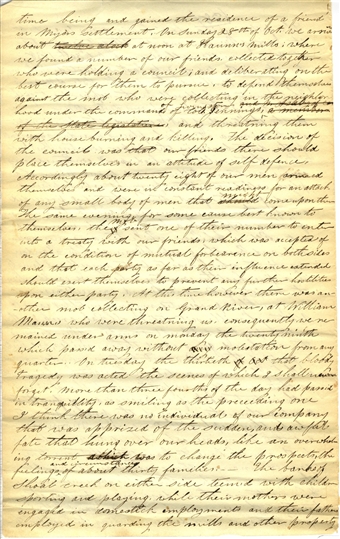 time being and gained the residence of a friend
in Myers Settlement. On sunday 28th of Oct. we arrived
about twelve oclock at noon at Hauns Mills, where
we found a number of our friends collected together
who were holding a council, and deliberating on the
best course for them to pursue to defend themselves
against the mob who were collecting in the neighbor
hood under the command of Col Jennings,
of the State legislature and threatning them
with house burning and killing. The decision of
the council was that our friends there should
place themselves in an attitude of self defence.
Accordingly about twenty eight of our men armed
themselves and were in constant readiness for an attack
of any small body of men that should come upon them
The same evening for some cause best known to
themselves the mob sent one of their number to enter
into a treaty with our friends which was accepted of
on the condition of mutual forbearance on both sides
and that each party as far as their influence extended
should exert themselves to prevent any further hostilities
upon either party. At this time however there was an-
other mob collecting on Grand River, at William
Manns who were threatning us, consequently we re
mained under arms on monday the twenty ninth
which passed away without molestation from any
quarter. On tuesday the thirtieth that bloody
tragedy was acted the scenes of which I shall never
forget. More than three fourths of the day had passed
in tranquility, as smiling as the preceeding one
I think there was no individual of our company
that was apprized of the sudden, and awful
fate that hung over our heads, like an overwhelm
ing torrent which was to change the prospects the
feelings and circumstances of about thirty families. — The banks of
Shoal creek on either side teemed with children
sporting and playing while their mothers were
engaged in domestick employments and their fathers
employed in guarding the mills and other property